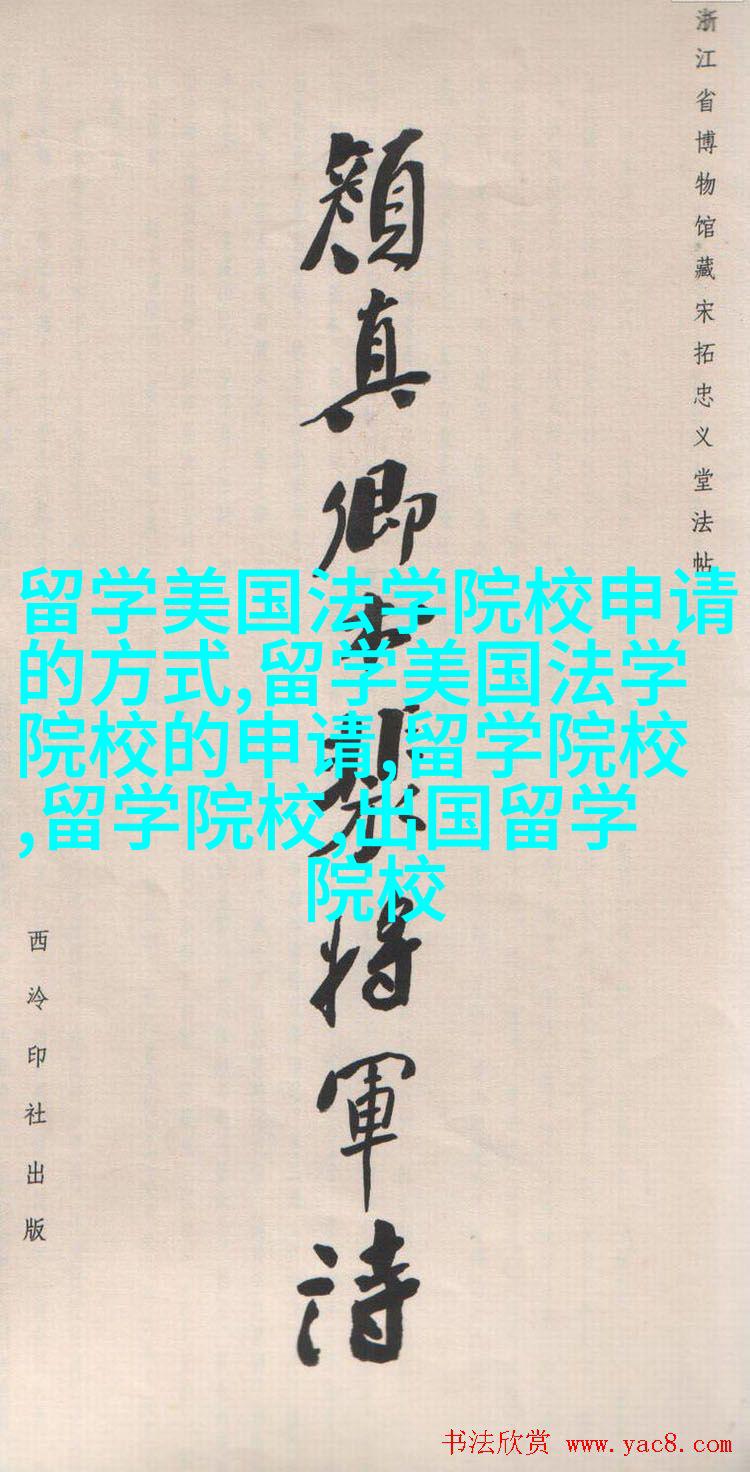 浙江省博物馆藏宋拓忠义堂法帖
顏真卿裴将軍诗
西泠印社出版
留学美国法学院校申请
的方式,留学美国法学
院校的申请,留学院校
,留学院校,出国留学
院校
书法欣赏 www.yac8.com